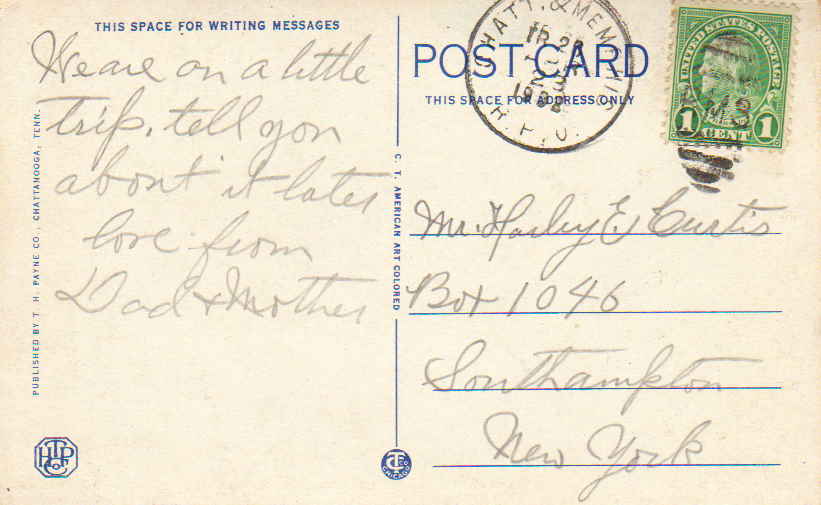 THIS SPACE FOR WRITING MESSAGES
We are on a little
trip. tell you
about it later
love from
Dad & Mother
PUBLISHED BY T. H. PAYNE CO., CHATTANOOGA, TENN.
C. T. AMERICAN ART COLORED
POST CARD
THIS SPACE FOR ADDRESS ONLY
CHATT. & MEMPHIS
R.P.O.
UNITED STATES POSTAGE
1 CENT 1
Mr. Harley E. Curtis
Box 1046
Southampton
New York
CHICAGO